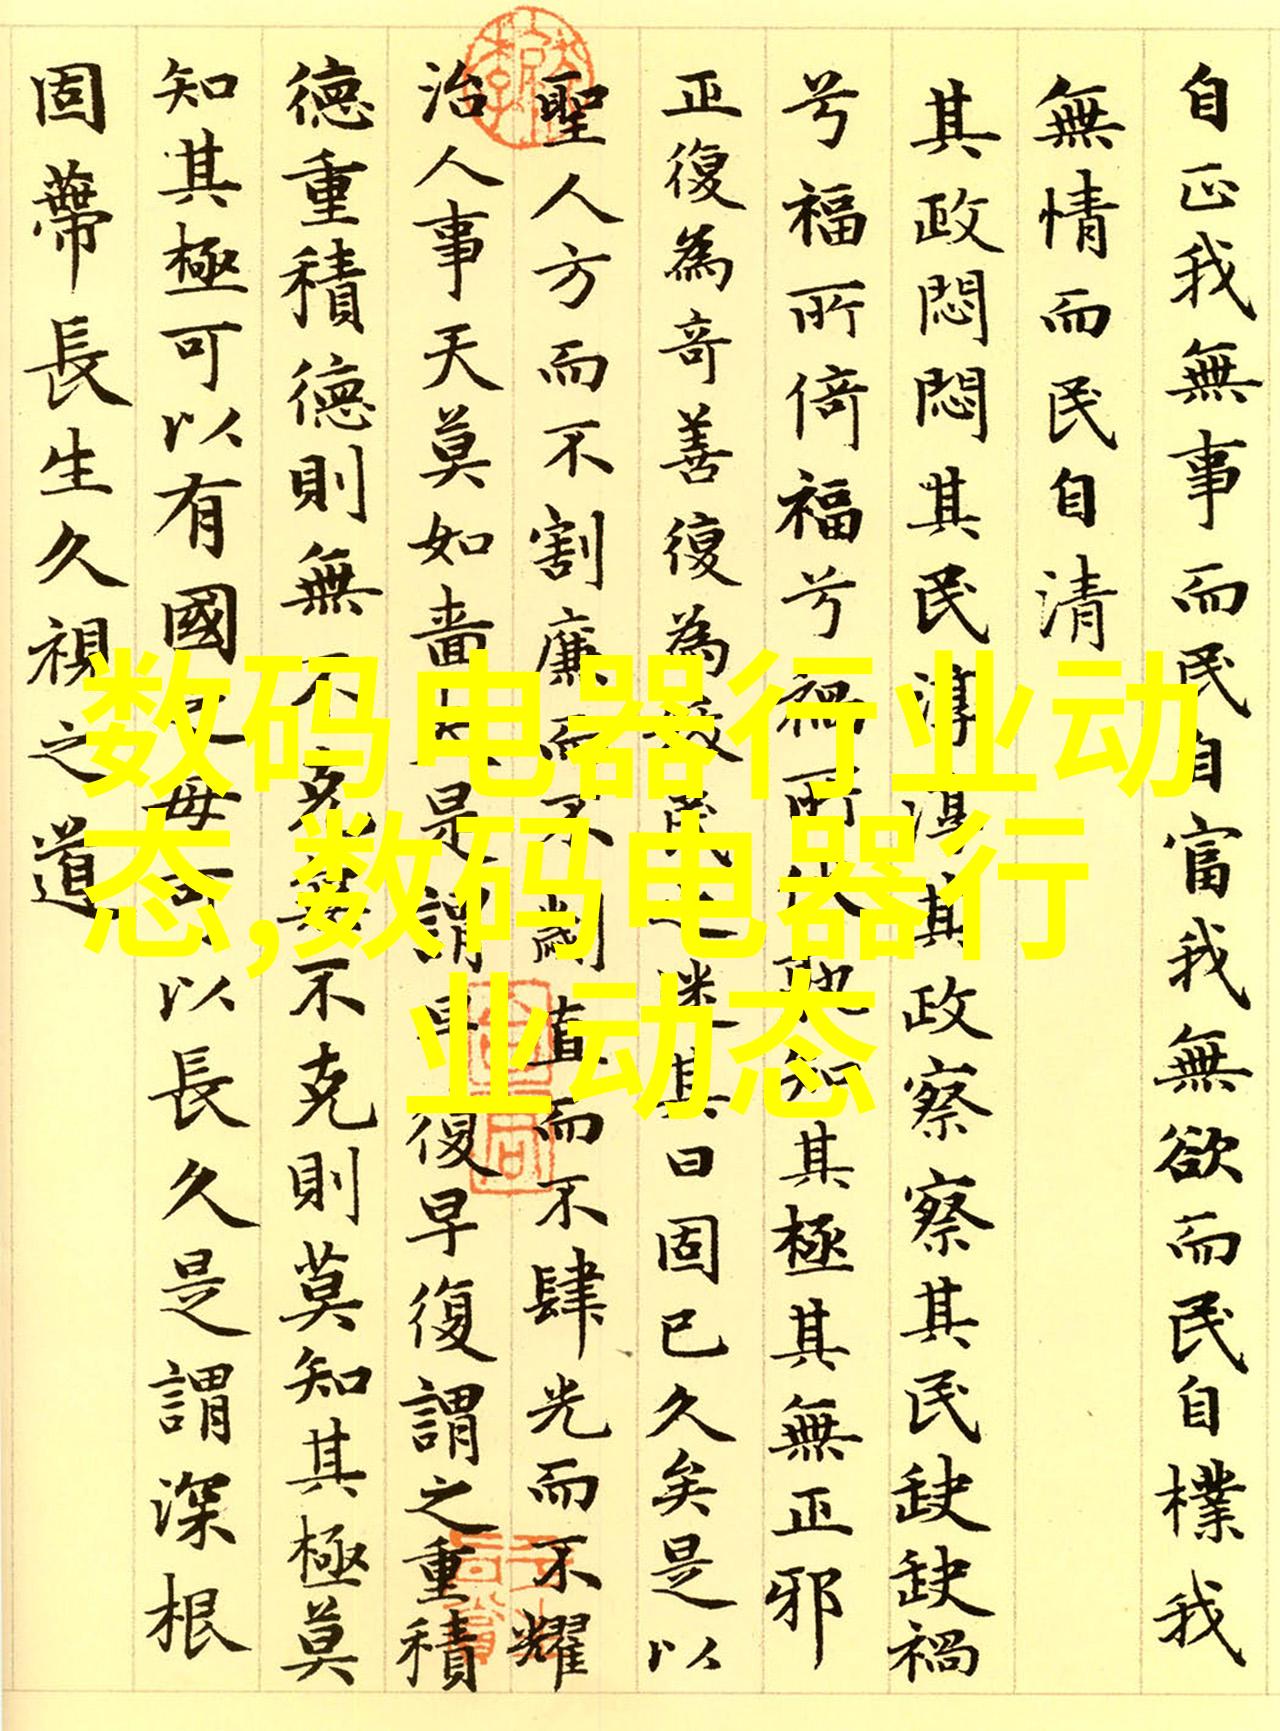 自正我無事而民自富我無欲而民自樸我
無情而民自清
其政悶悶其民淳淳其政察察其民缺缺禍
兮福所倚福兮禍所伏孰知其極其無正邪
正復為奇善復為妖民之迷其日固已久矣是以
聖人方而不割廉而不劌直而不肆光而不耀
治人事天莫如嗇夫是謂早復早復謂之重積
德重積德則無不克無不克則莫知其極莫
知其極可以有國之母可以長久是謂深根
固蔕長生久視之道
数码电器行业动
态,数码电器行
业动态